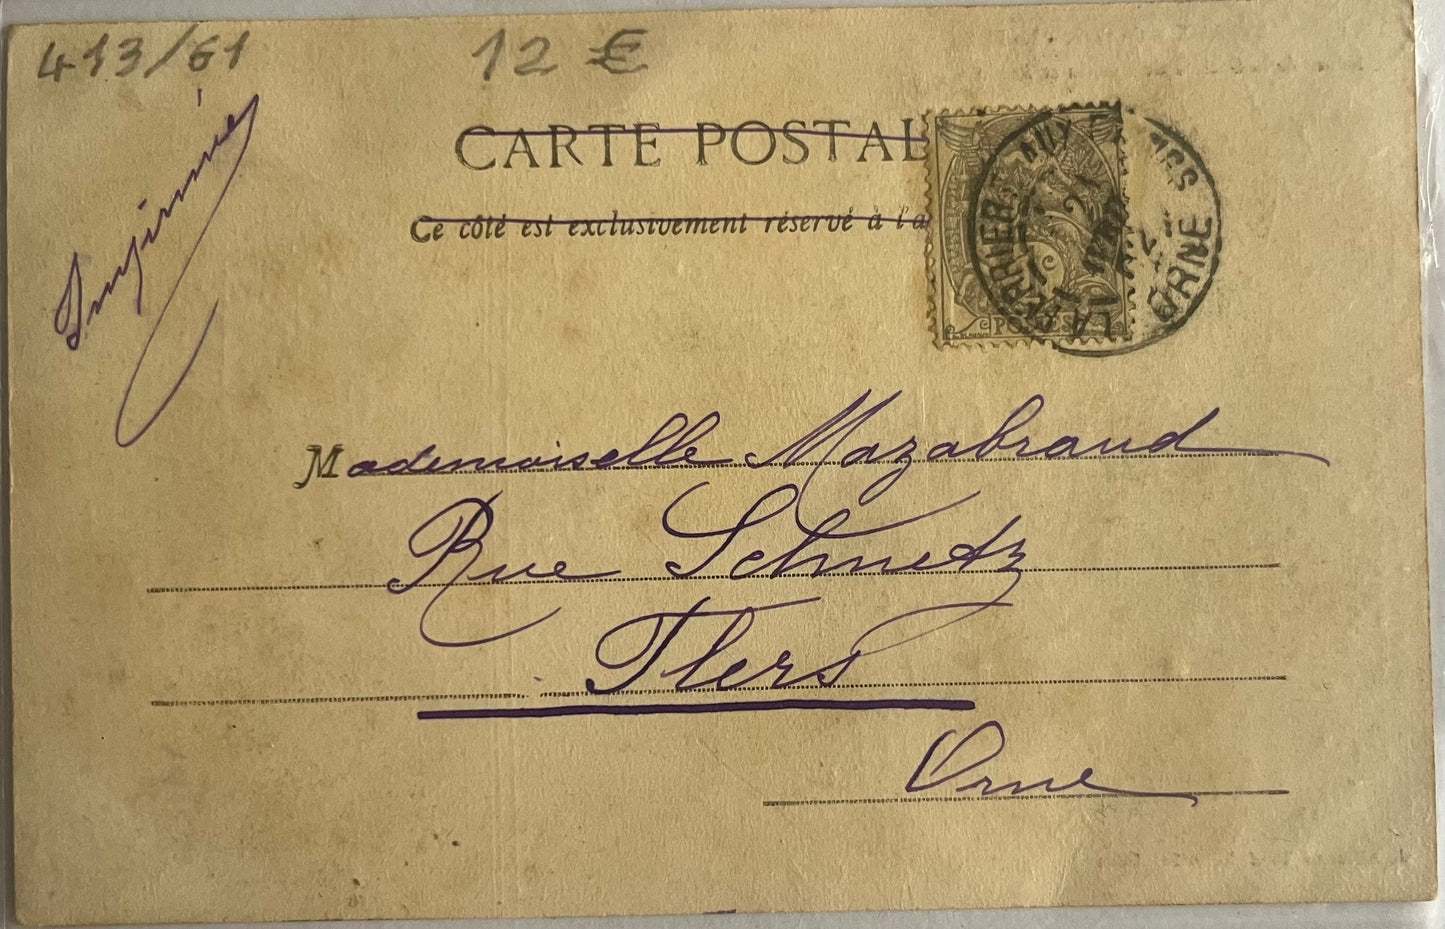 413/61
12 €
Imprimé
CARTE POSTAL
Ce côté est exclusivement réservé à l'a
POSTES
ORNE
Mademoiselle Mazabraud
Rue Schnetz
Flers
Orne